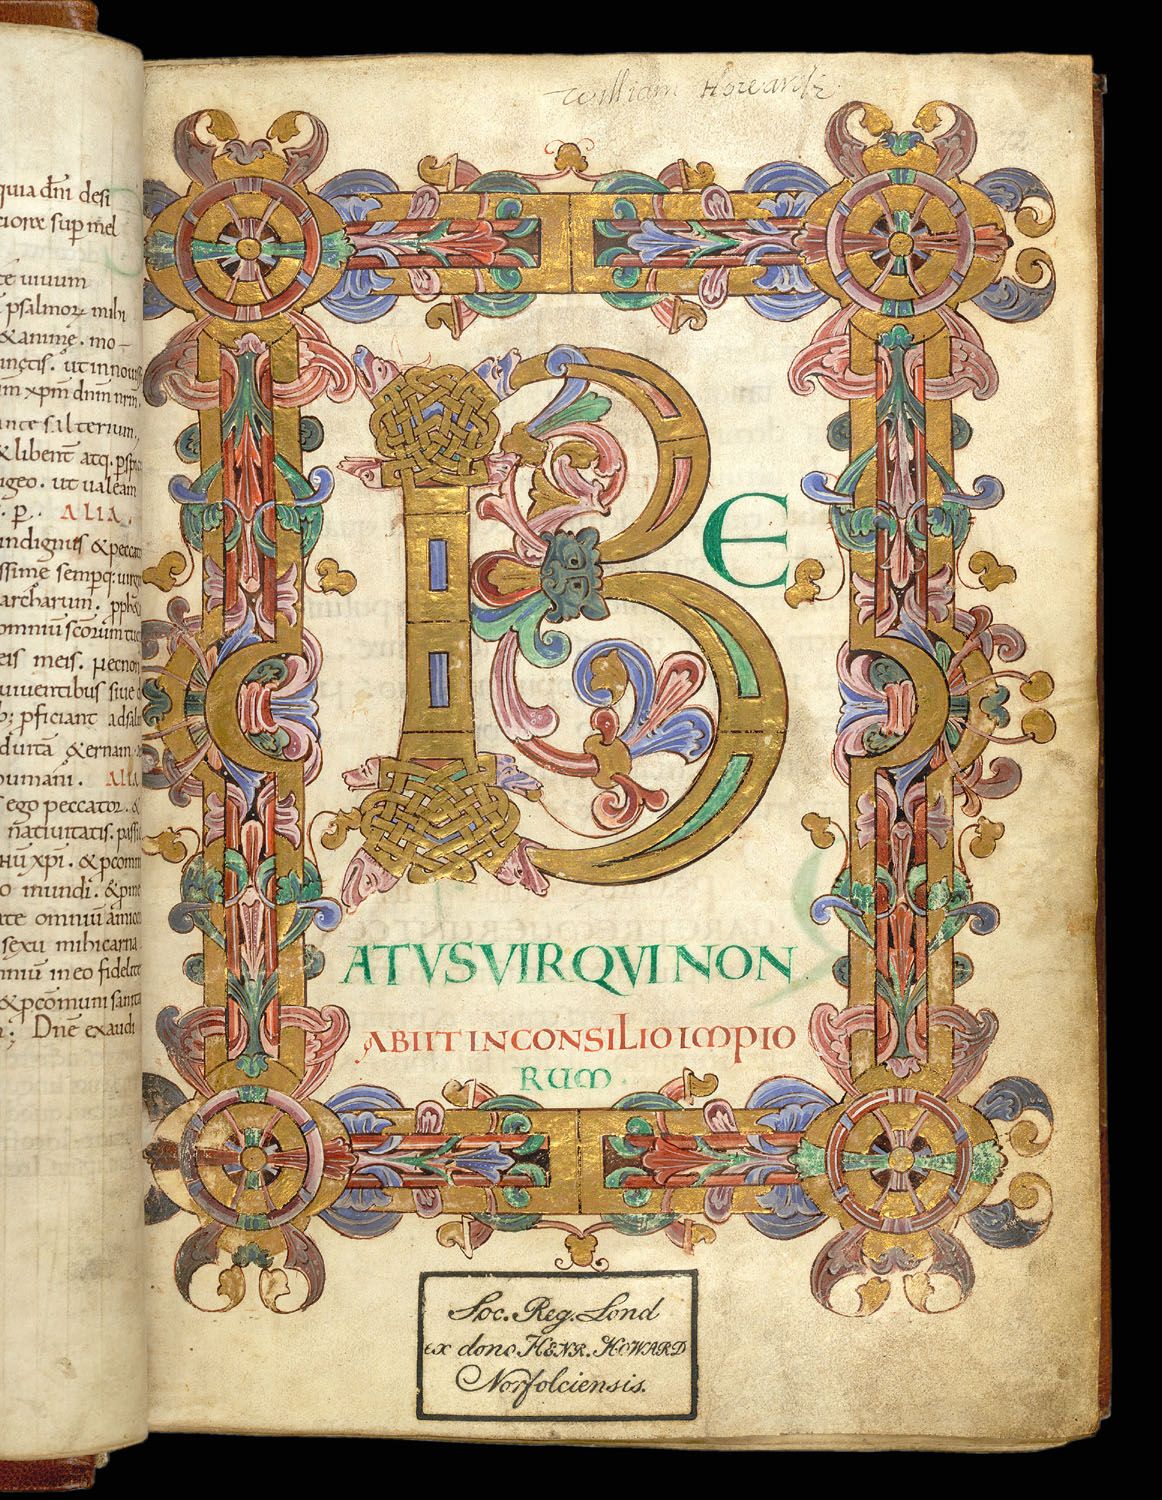 quia dm̄ desi
cione sup mel
te uiuum
psalmoꝝ mihi
& anime . mo-
inctis . ut innoui
um xp̄m dnm̄ nrm̄.
ante salterium.
& liben̄t atq . p̄sp
igeo . ut ualeam
. p . ALIA .
indignus & peccat
ssime semperq: uirgo
archarum . pph&
omniū scōrum tuo
eis meis . necnon
uiuentibus siue d
b; p̄ficiant ad sal
duitā & ernam .
humani . ALIA
s ego peccator . &
natiuitatis . passi
ihū xp̄i . & p̄comm
o mundi . & p̄me
ate omniū amico
sexu mihi carna
nniū in eo fidele
& p̄comuni sanita
Dnē exaudi
William Howarde
B E
ATVS VIR QVI NON
ABIIT IN CONSILIO IMPIO
RUM .
Soc. Reg. Lond
ex dono HENR. HOWARD
Norfolciensis.